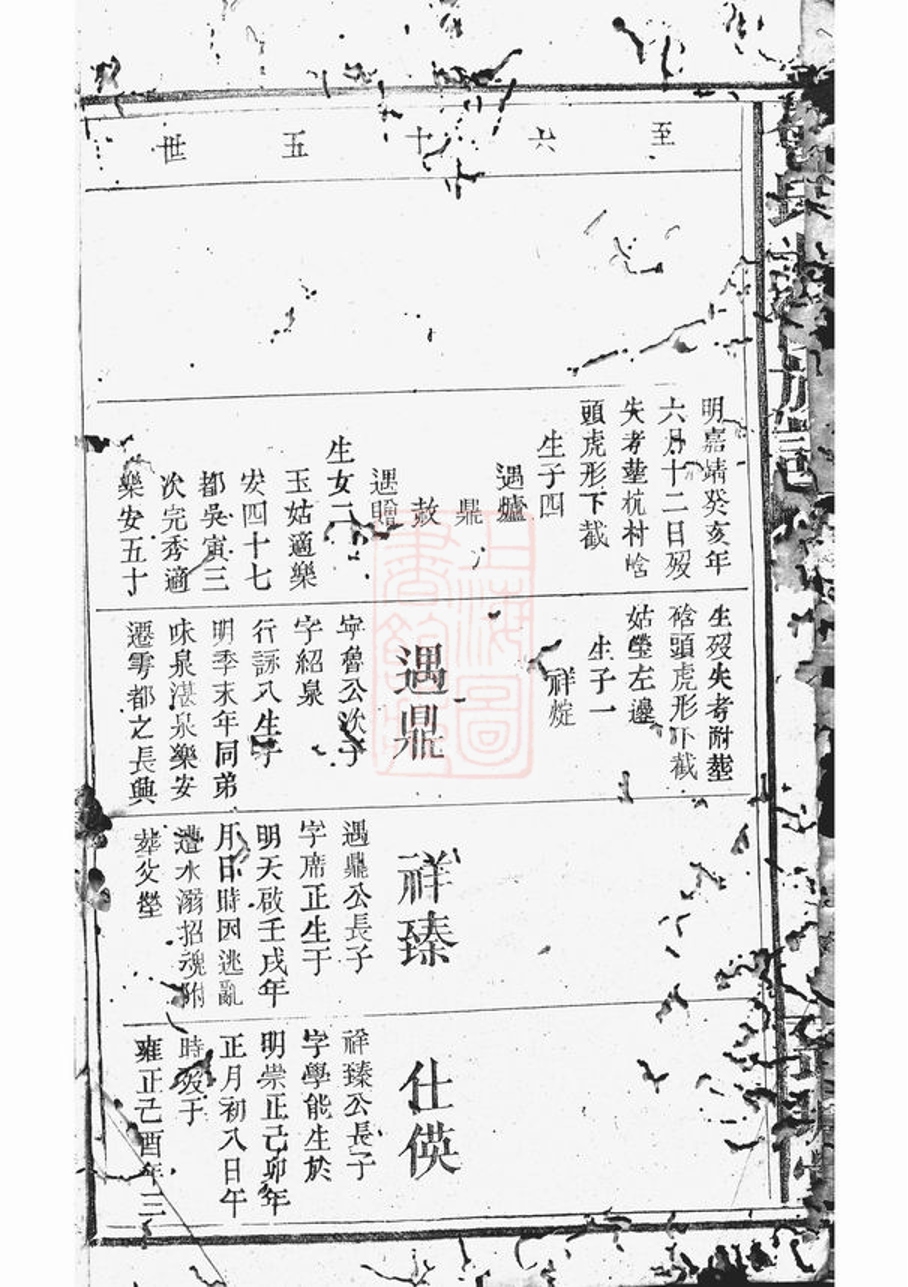 至
六
十
五
世
明嘉靖癸亥年
六月十二日歿
失考塟杭村啥
頭虎形下截
生子四
遇爐
鼎
敖
遇贈
生女二
玉姑適樂
安四十七
都吳寅三
次完秀適
樂安五十
生歿失考附塟
硆頭虎形下截
姑塋左邊
生子一
祥㷍
遇鼎
寧魯公次子
字紹泉
行詠八生子
明季末年同弟
味泉湛泉樂安
遷雩都之長興
祥臻
遇鼎公長子
字席正生于
明天啟壬戌年
月日時因逃亂
遭水溺招魂附
葬父塋
仕偀
祥臻公長子
字學能生於
明崇正己卯年
正月初八日午
時歿于
雍正己酉年三
上海圖書館藏